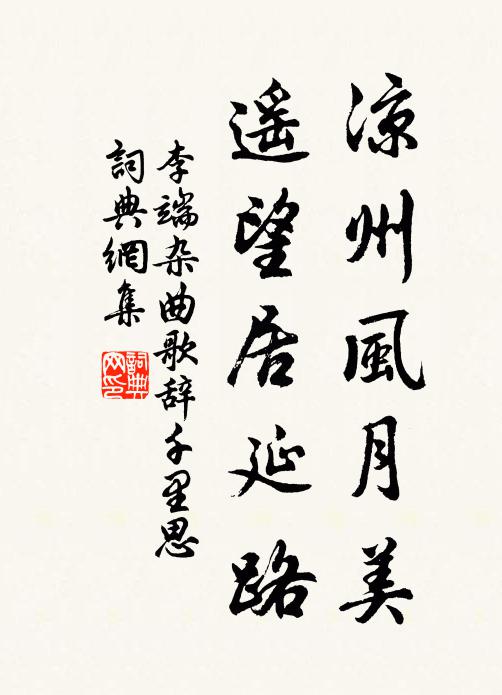 凉州風月美
遥望居延路
李端杂曲歌辞千里思
詞典網集
詞典
网印